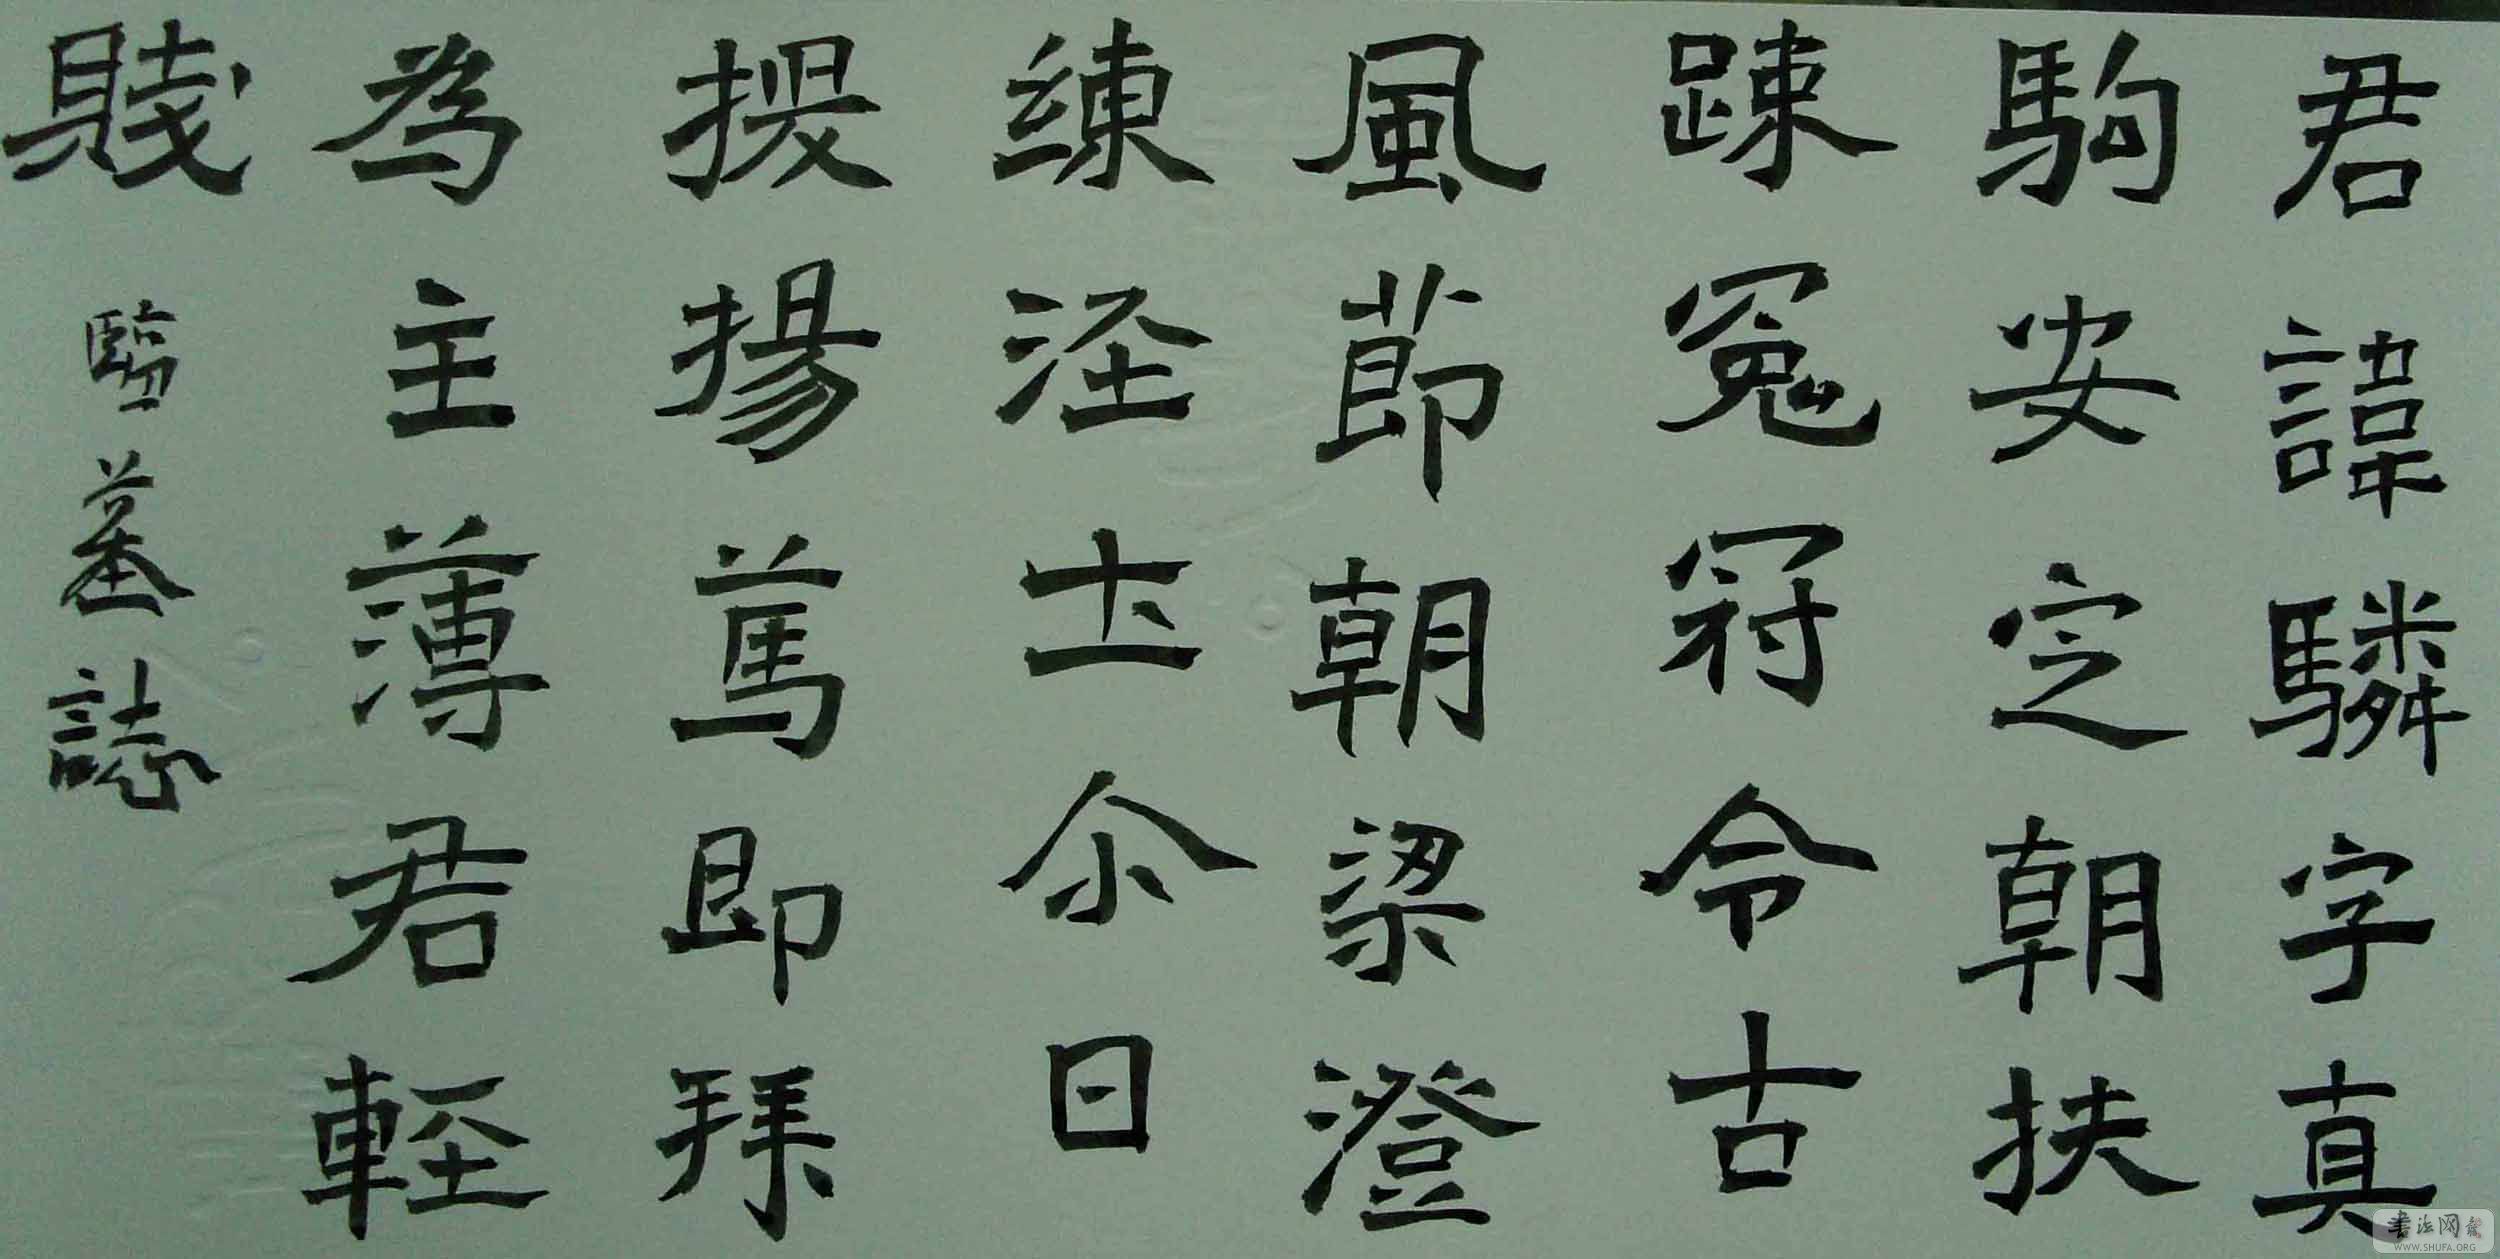 君諱驎字真
駒安定朝扶
踈冤冠令古
風莭朝梁澄
練泾士尒日
授揚萬即拜
為主薄君輕
賤
臨墓誌
書法网
WWW.SHUFA.ORG